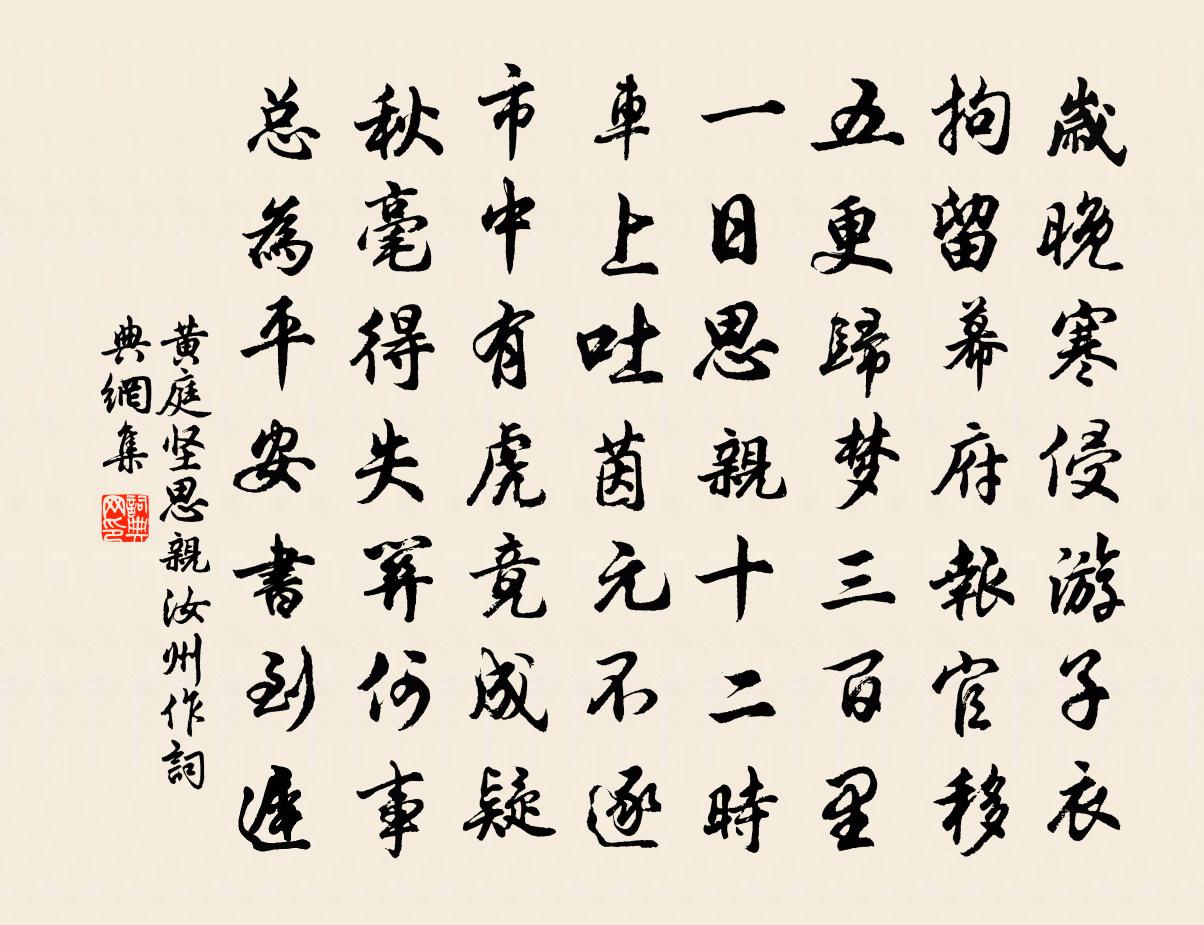 歲晚寒侵游子衣
拘留幕府報官移
五更歸梦三百里
一日思親十二時
車上吐茵元不逐
市中有虎竟成疑
秋毫得失關何事
总為平安書到遲
黄庭坚思親汝州作詞
典網集
詞典
网印